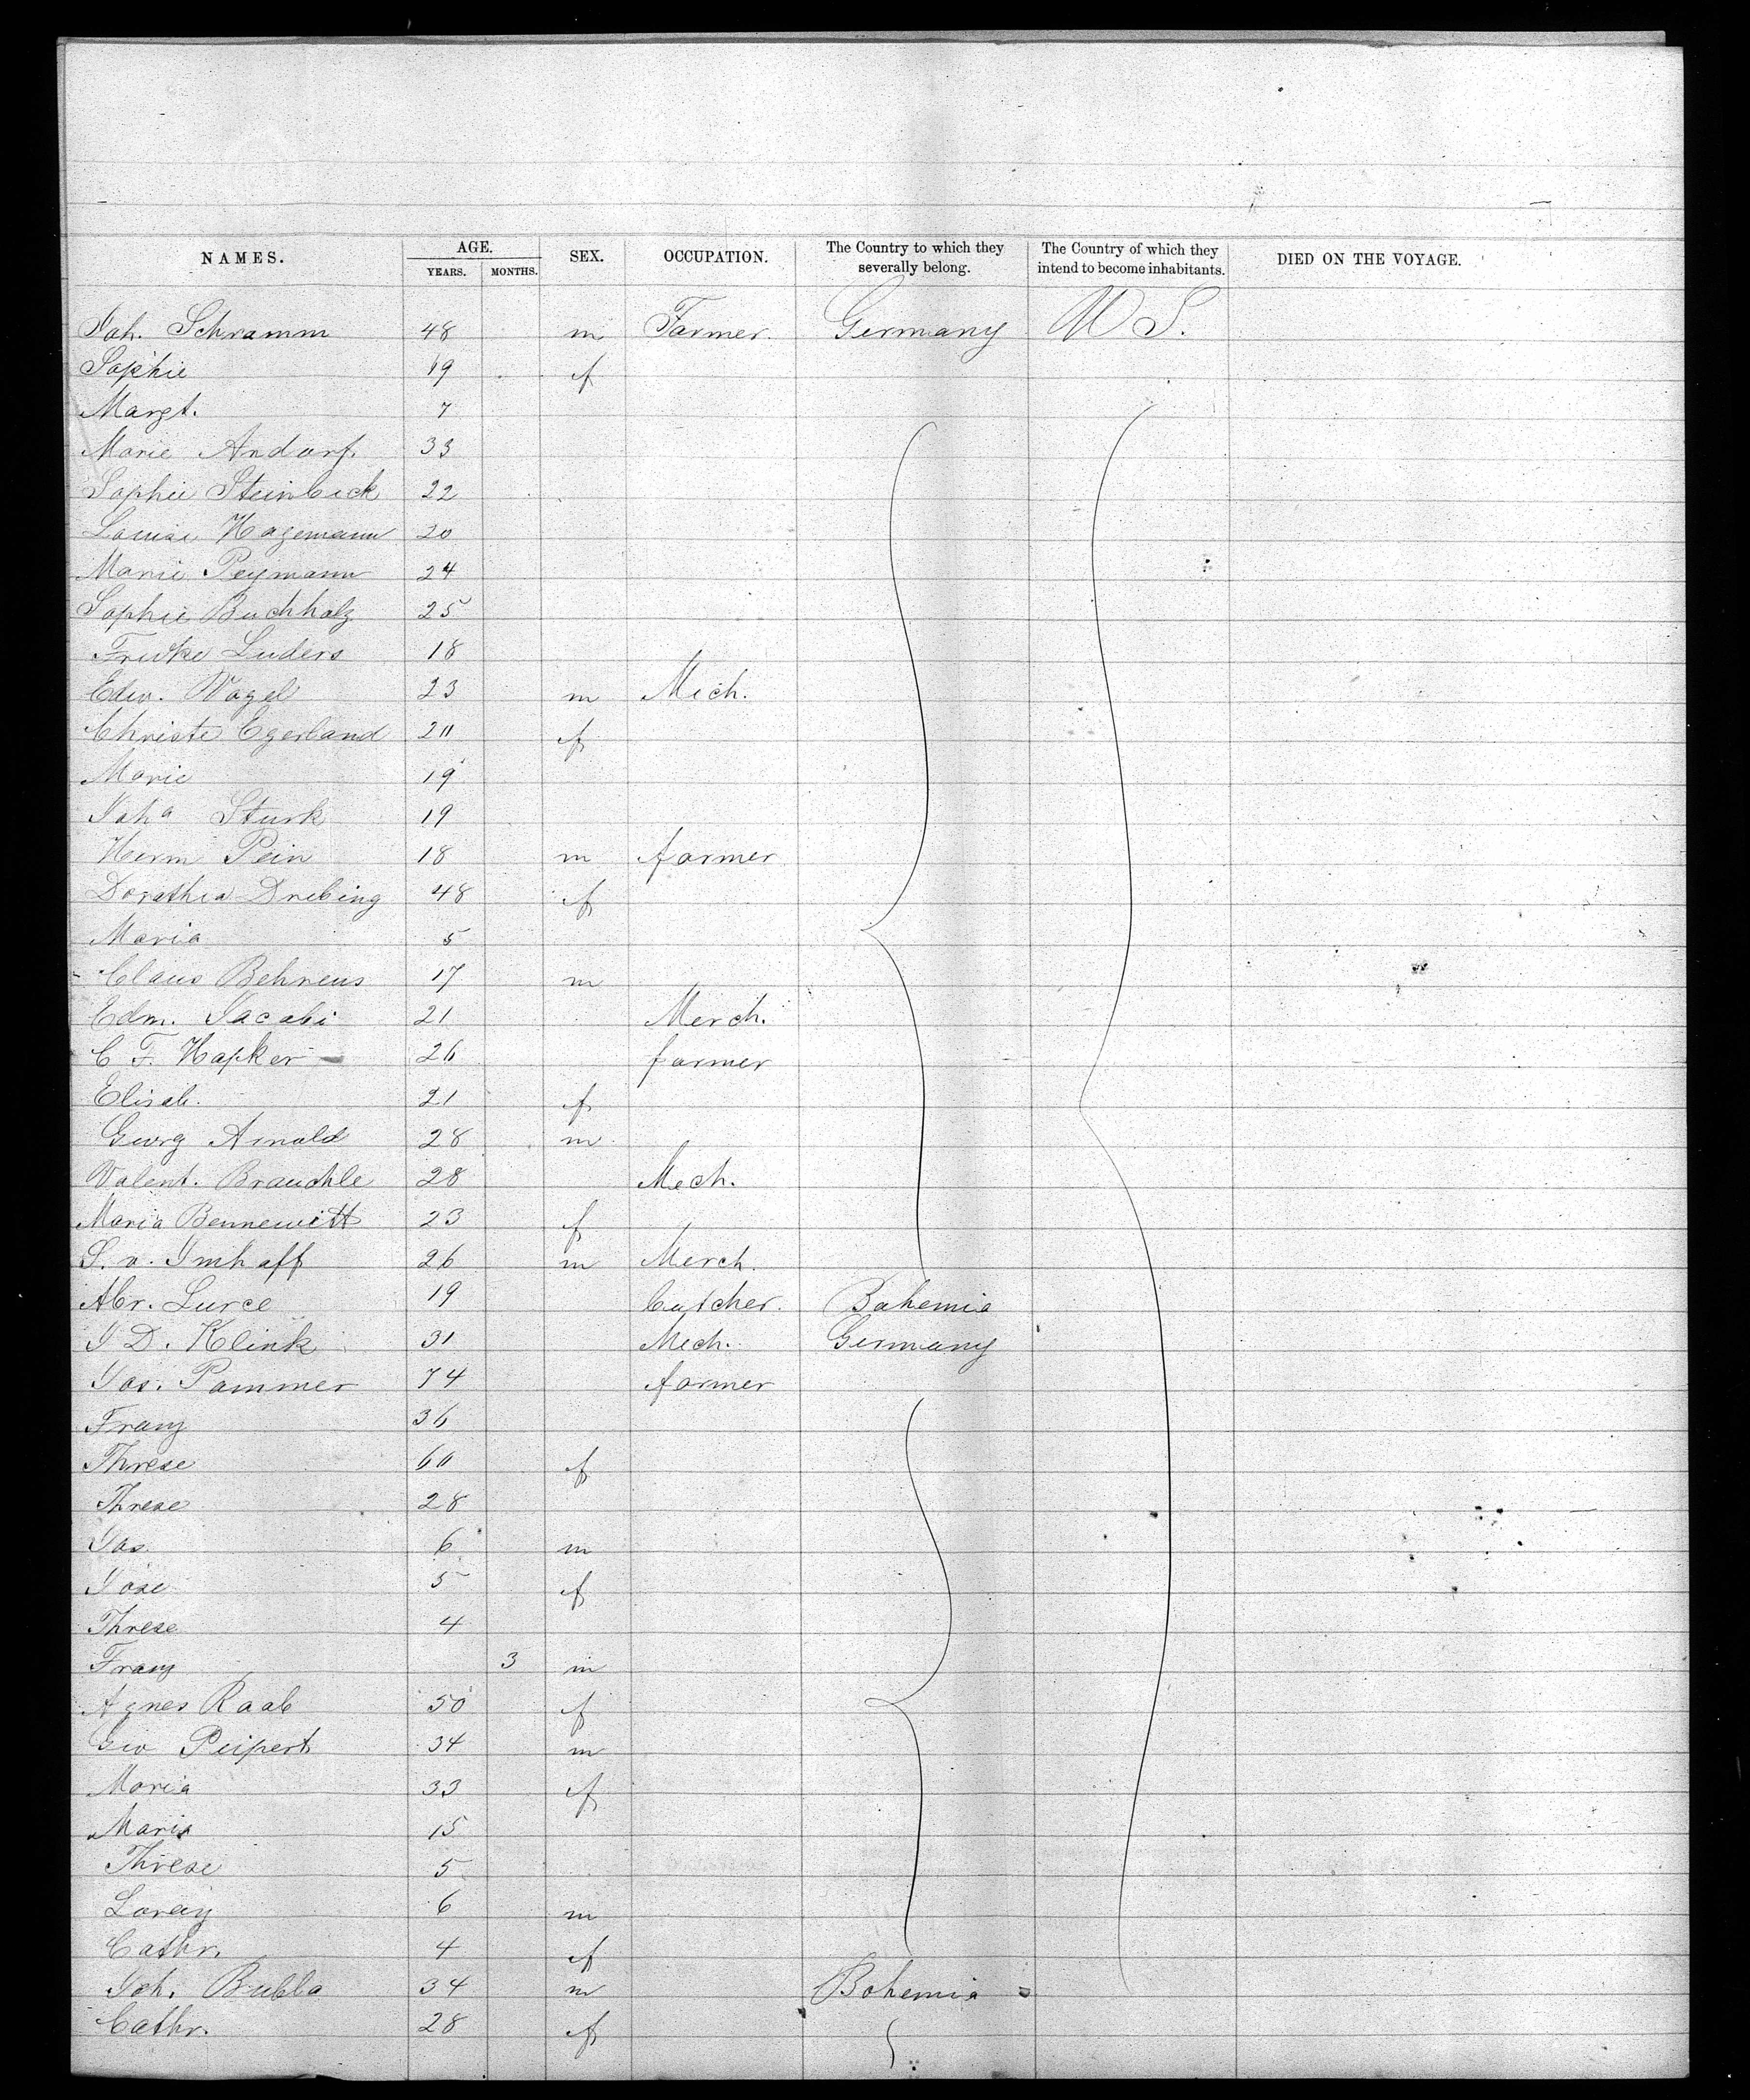 NAMES. AGE. YEARS. MONTHS. SEX. OCCUPATION. The Country to which they severally belong. The Country of which they intend to become inhabitants. DIED ON THE VOYAGE.
Joh. Schramm 48 m Farmer. Germany U S.
Sophie 19 f
Margt. 7
Marie Andorf 33
Sophie Steinbeck 22
Louise Hagemann 20
Marie Peymann 24
Sophie Buchholz 25
Luders 18
Edw. Vogel 23 m Mech.
Christe Egerland 20 f
Marie 19
Joha Sturk 19
Herm Pein 18 m farmer
Dorathea Drebing 48 f
Maria 5
Claus Behrens 17 m
Edm. Jacobi 21 Merch.
C F. Hapker 26 farmer
Elisab. 21 f
Georg Arnold 28 m
Valent. Brauchle 28 Mech.
Maria Bennewitt 23 f
S. v. Imhoff 26 m Merch.
Abr. Lurce 19 butcher. Bohemia
J D. Klink 31 Mech. Germany
Jos. Pammer 74 farmer
Franz 36
Threse 60 f
Threse 28
Jos. 6 m
Jose 5 f
Threse 4
Franz 3 m
Agnes Raab 50 f
Geo Peipert 34 m
Maria 33 f
Maria 15
Threse 5
Lorenz 6 m
Cathr. 4 f
Joh. Bubla 34 m Bohemia
Cathr. 28 f